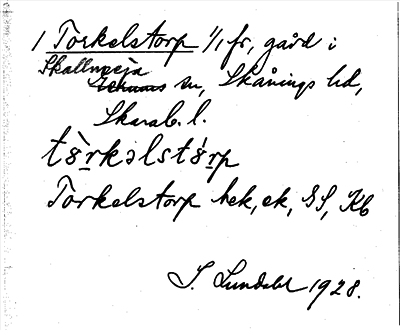 1 Torkelstorp 1/1 fr, gård i
Skallmeja
sn, Skånings hd,
Skarab. l.
tò̤rkəlstó̤rp
Torkelstorp hek, ek, GS, Kb
S. Lundahl 1928.